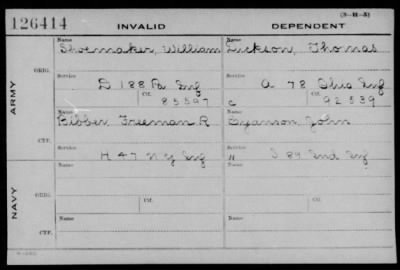 (3-H-5)
126414 INVALID DEPENDENT
Name Name
Shoemaker, William Dickson, Thomas
ORIG.
Service Service
D 188 Pa Inf A 78 Ohio Inf
Ctf. Ctf.
85597 C 92539
ARMY
Name Name
Bibber Freeman R Swanson John
CTF.
Service Service
H 47 N Y Inf W I 89 Ind Inf
Name Name
ORIG.
Ctf. Ctf.
NAVY
Name Name
CTF.